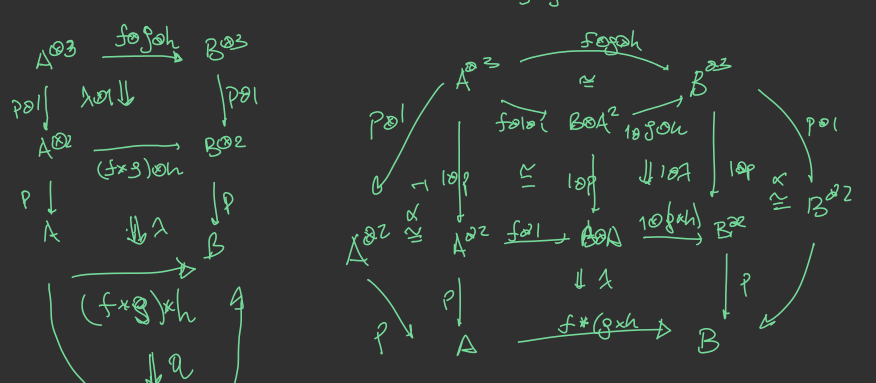 f⊗g⊗h
A^⊗3 B^⊗3
P⊗1 λ⊗1 ⇓ P⊗1
A^⊗2 B^⊗2
(f*g)⊗h
P ⇓ λ P
A B
(f*g)*h
f⊗g⊗h
A^⊗3 ≅ B^⊗3
P⊗1 f⊗1⊗1 B⊗A^2 1⊗g⊗h P⊗1
1⊗P ≅ 1⊗P ⇓ 1⊗λ 1⊗P α ≅ B^⊗2
A^⊗2 α ≅ A^⊗2 f⊗1 B⊗A 1⊗(g*h) B^⊗2
P P ⇓ λ P
f*(g*h
A B